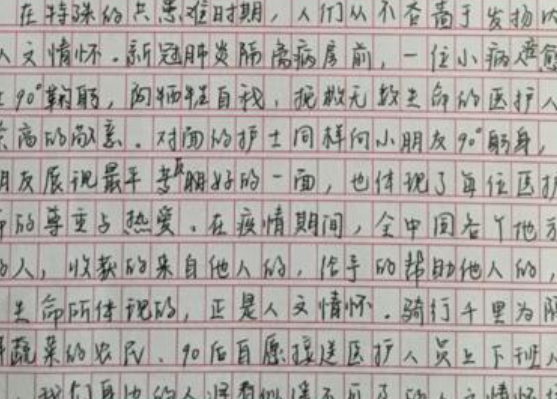 在特殊的共患难时期，人们从不吝啬于发扬
人文情怀。新冠肺炎隔离病房前，一位小病人
90°鞠躬，向牺牲自我，挽救无数生命的医护人
崇高的敬意。对面的护士同样向小朋友90°躬身，
朋友展现最平等明好的一面，也体现了每位医护
的尊重与热爱。在疫情期间，全中国各个地方
的人，收获的来自他人的，给予的帮助他人的
生命所体现的，正是人文情怀。骑行千里为
蔬菜的农民、90后自愿接送医护人员上下班